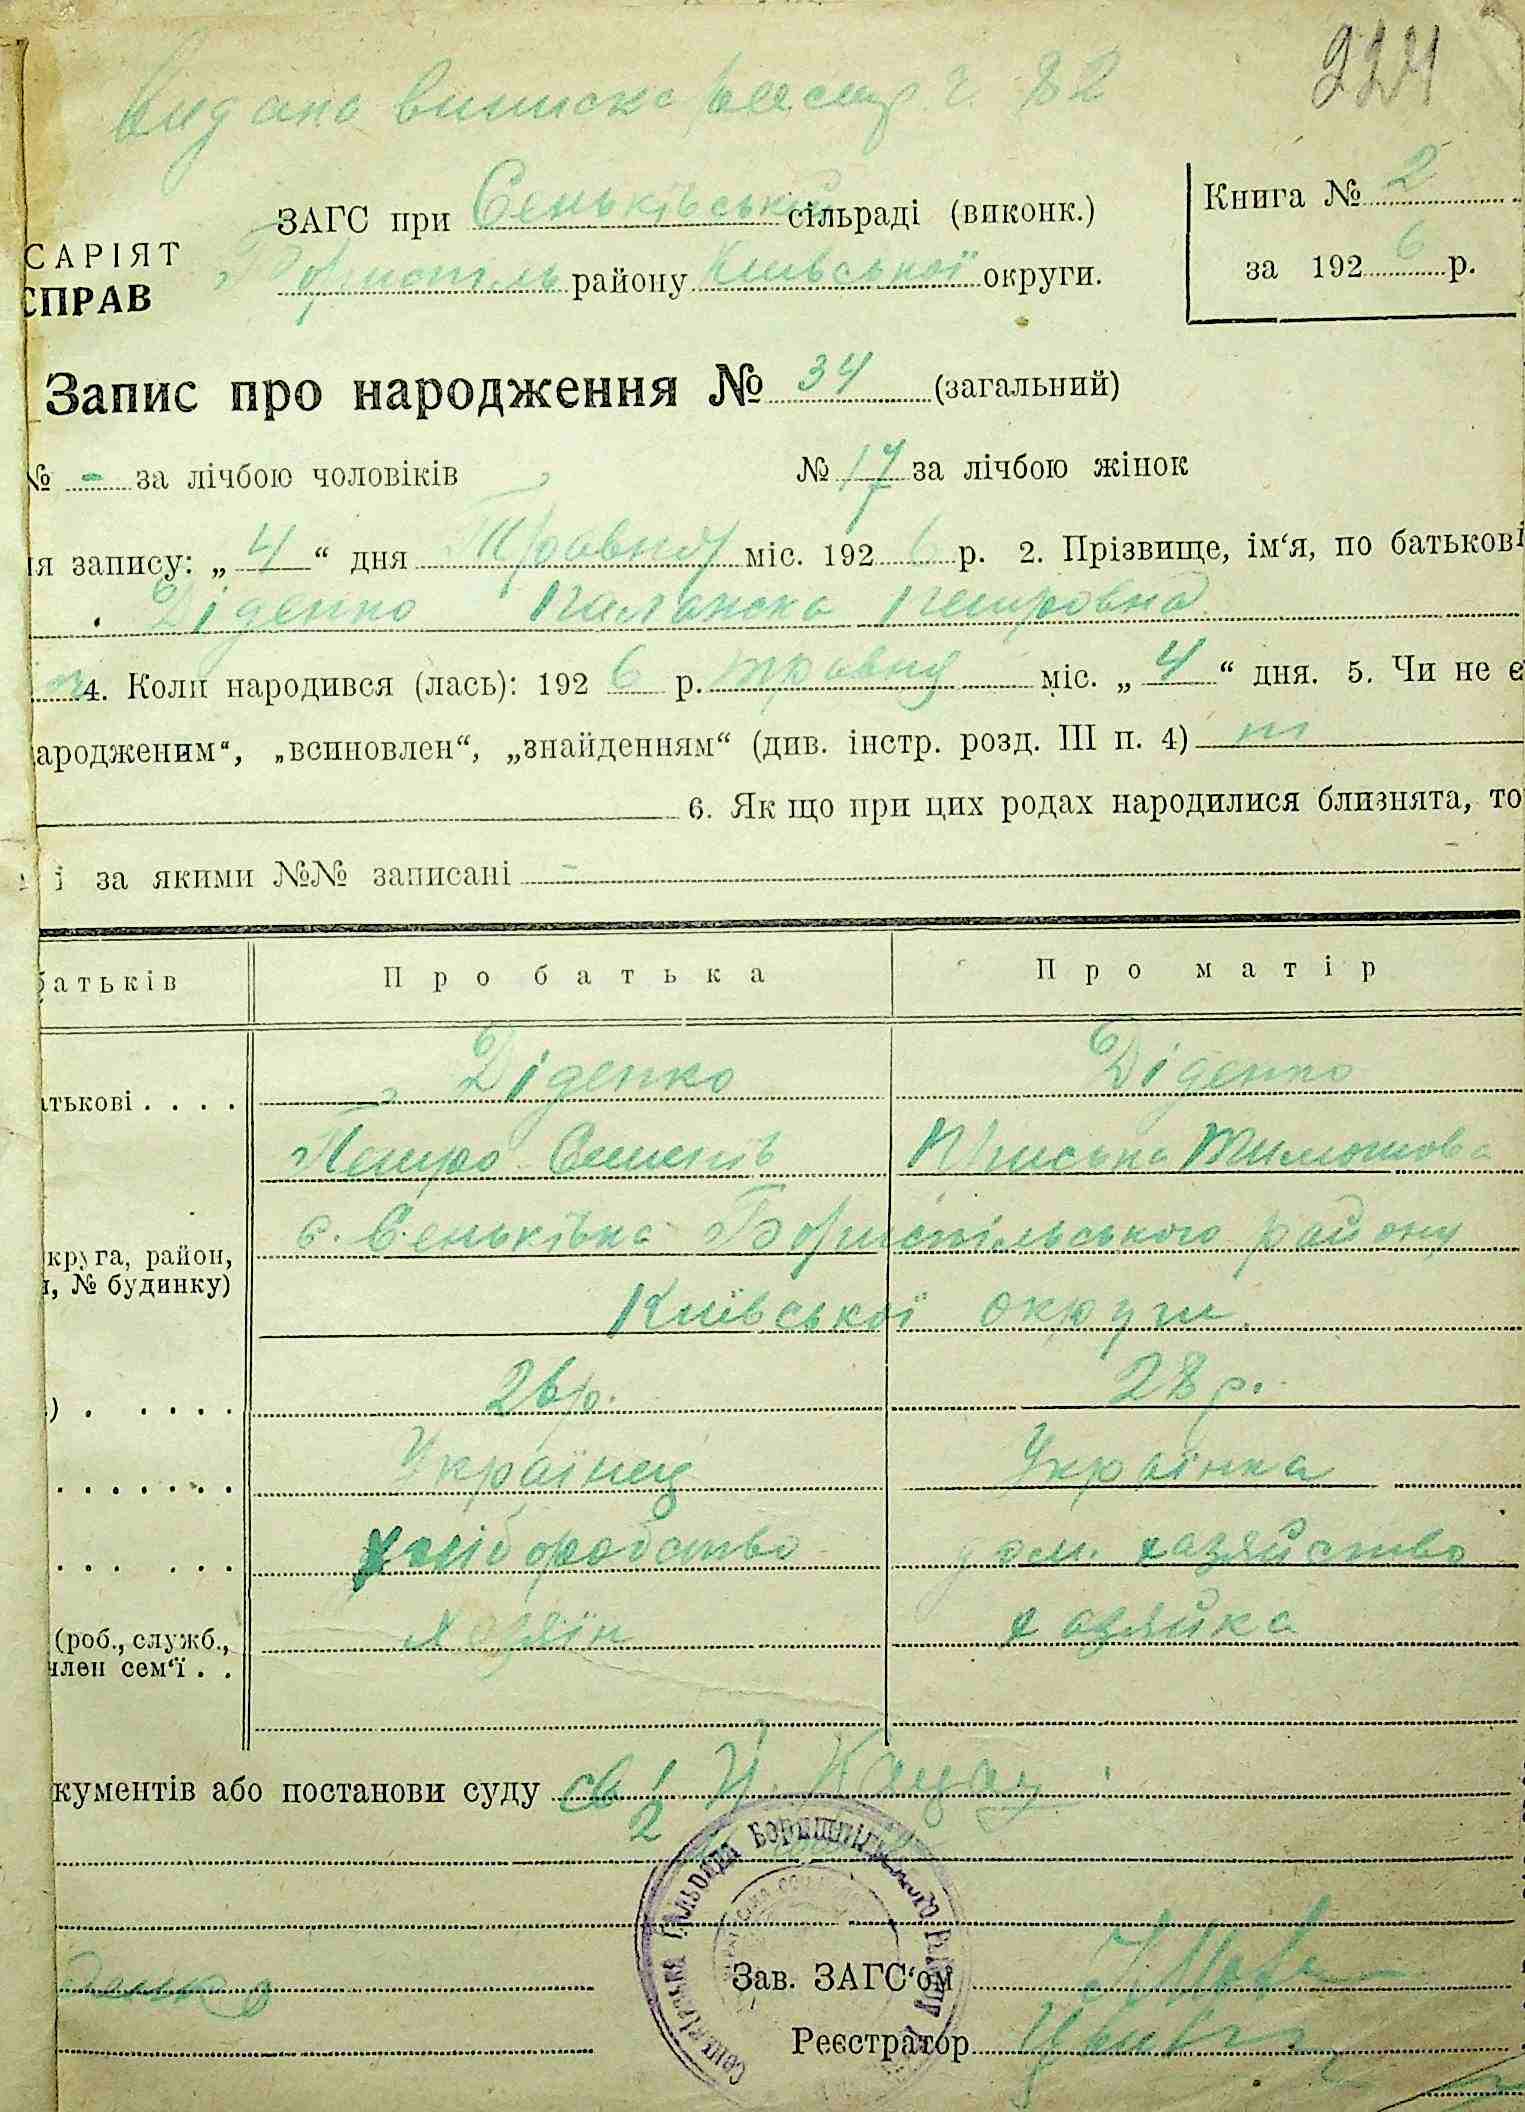 224
Видано виписка реєстр. ч. 82
ЗАГС при Сеньківській сільраді (виконк.)
Книга № 2
САРІЯТ
СПРАВ
Бориспіль району Київської округи.
за 1926 р.
Запис про народження № 34 (загальний)
№ - за лічбою чоловіків № 17 за лічбою жінок
ія запису: „4“ дня Травня міс. 1926 р. 2. Прізвище, ім'я, по батькові
Діденко Палажка Петровна
4. Коли народився (лась): 1926 р. травня міс. „4“ дня. 5. Чи не є
ародженим“, „всиновлен“, „знайденням“ (див. інстр. розд. III п. 4)
6. Як що при цих родах народилися близнята, то
і за якими №№ записані -
батьків Про батька Про матір
Діденко Діденко
атькові . . . .
Петро Тимошова
с. Сеньківка Бориспільського району
круга, район,
, № будинку)
Київської округи.
26 р. 28 р.
) . . . . .
Українец Українка
хліборобство дом. хазяйство
хазяїн хазяйка
(роб., служб.,
член сем'ї . .
кументів або постанови суду
Сеньківська сільрада Бориспільського району
Зав. ЗАГС'ом
Реєстратор